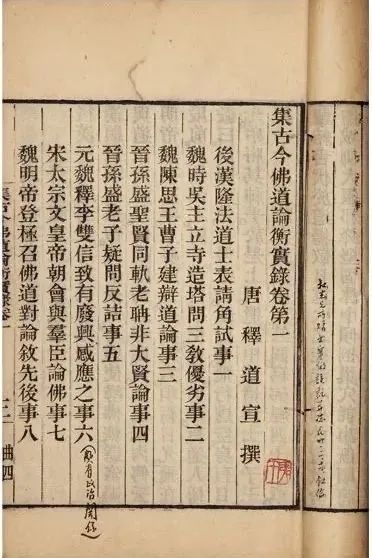 集古今佛道論衡實錄卷第一
唐釋道宣撰
後漢隆法道士表請角試事一
魏時吳主立寺造塔問三教優劣事二
魏陳思王曹子建辯道論事三
晉孫盛聖賢同軌老聃非大賢論事四
晉孫盛老子疑問反詰事五
元魏釋李雙信致有廢興感應之事六
頗有政治關係
宋太宗文皇帝朝會與羣臣論佛事七
魏明帝登極召佛道對論敘先後事八
集古今佛道論衡實錄卷一
曲四